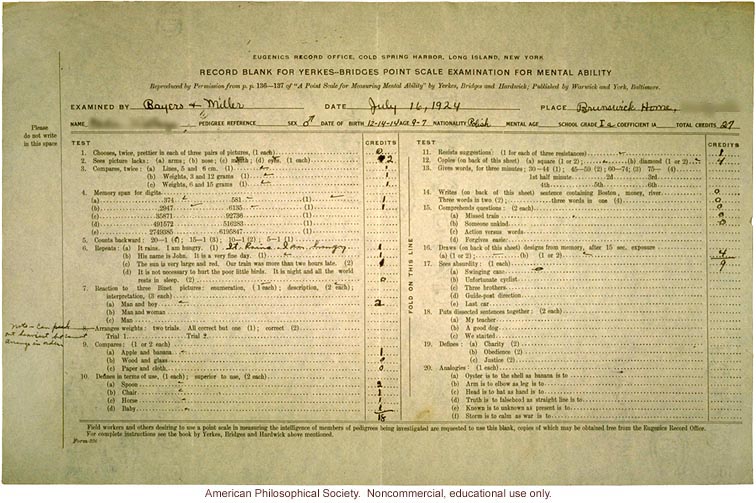 EUGENICS RECORD OFFICE, COLD SPRING HARBOR, LONG ISLAND, NEW YORK
RECORD BLANK FOR YERKES-BRIDGES POINT SCALE EXAMINATION FOR MENTAL ABILITY
Reproduced by Permission from p. p. 136—137 of "A Point Scale for Measuring Mental Ability" by Yerkes, Bridges and Hardwick; Published by Warwick and York, Baltimore.
EXAMINED BY Bayers & Miller DATE July 16, 1924 PLACE Brunswick Home,
NAME PEDIGREE REFERENCE SEX ♂ DATE OF BIRTH 12-14-14 AGE 9-7 NATIONALITY Polish MENTAL AGE SCHOOL GRADE COEFFICIENT IA TOTAL CREDITS 27
Please
do not write
in this space
TEST CREDITS
1. Chooses, twice, prettier in each of three pairs of pictures, (1 each) 0
2. Sees picture lacks: (a) arms; (b) nose; (c) mouth; (d) eyes (1 each) 2
3. Compares, twice: (a) Lines, 5 and 6 cm. (1) 1
(b) Weights, 3 and 12 grams (1) 1
(c) Weights, 6 and 15 grams (1) 1
4. Memory span for digits
(a) 374 581 (1) 1
(b) 2947 6135 (1) 1
(c) 35871 92736 (1)
(d) 491572 516283 (1)
(e) 2749385 6195847 (1)
5. Counts backward: 20—1 (4); 15—1 (3); 10—1 (2); 5—1 (1)
6. Repeats: (a) It rains. I am hungry. (1) It rains I am hungry 1
(b) His name is John. It is a very fine day. (1) 1
(c) The sun is very large and red. Our train was more than two hours late. (2)
(d) It is not necessary to hurt the poor little birds. It is night and all the world
rests in sleep. (2) 0
7. Reaction to three Binet pictures: enumeration, (1 each); description, (2 each);
interpretation, (3 each)
(a) Man and boy 2
(b) Man and woman
(c) Man
Note — Can
8. Arranges weights: two trials. All correct but one (1); correct (2)
Trial 1. Trial 2.
arrange in order
9. Compares: (1 or 2 each)
(a) Apple and banana 1
(b) Wood and glass 0
(c) Paper and cloth 0
10. Defines in terms of use, (1 each); superior to use, (2 each)
(a) Spoon 2
(b) Chair 1
(c) Horse 1
(d) Baby 1
18
FOLD ON THIS LINE
TEST CREDITS
11. Resists suggestions: (1 for each of three resistances) 1
12. Copies (on back of this sheet) (a) square (1 or 2); (b) diamond (1 or 2) 4
13. Gives words, for three minutes: 30—44 (1); 45—59 (2); 60—74; (3) 75— (4)
1st half minute 2d 3rd
4th 5th 6th
14. Writes (on back of this sheet) sentence containing Boston, money, river. 0
Three words in two (2); three words in one (4) 0
15. Comprehends questions: (2 each)
(a) Missed train 0
(b) Someone unkind 0
(c) Action versus words
(d) Forgives easier
16. Draws (on back of this sheet) designs from memory, after 15 sec. exposure
(a) (1 or 2); (b) (1 or 2) 4
17. Sees absurdity: (1 each) 9
(a) Swinging cane
(b) Unfortunate cyclist
(c) Three brothers
(d) Guide-post direction
(e) Last car
18. Puts dissected sentences together: (2 each)
(a) My teacher
(b) A good dog
(c) We started
19. Defines: (a) Charity (2)
(b) Obedience (2)
(c) Justice (2)
20. Analogies: (1 each)
(a) Oyster is to the shell as banana is to
(b) Arm is to elbow as leg is to
(c) Head is to hat as hand is to
(d) Truth is to falsehood as straight line is to
(e) Known is to unknown as present is to
(f) Storm is to calm as war is to
Field workers and others desiring to use a point scale in measuring the intelligence of members of pedigrees being investigated are requested to use this blank, copies of which may be obtained free from the Eugenics Record Office.
For complete instructions see the book by Yerkes, Bridges and Hardwick above mentioned.
American Philosophical Society. Noncommercial, educational use only.